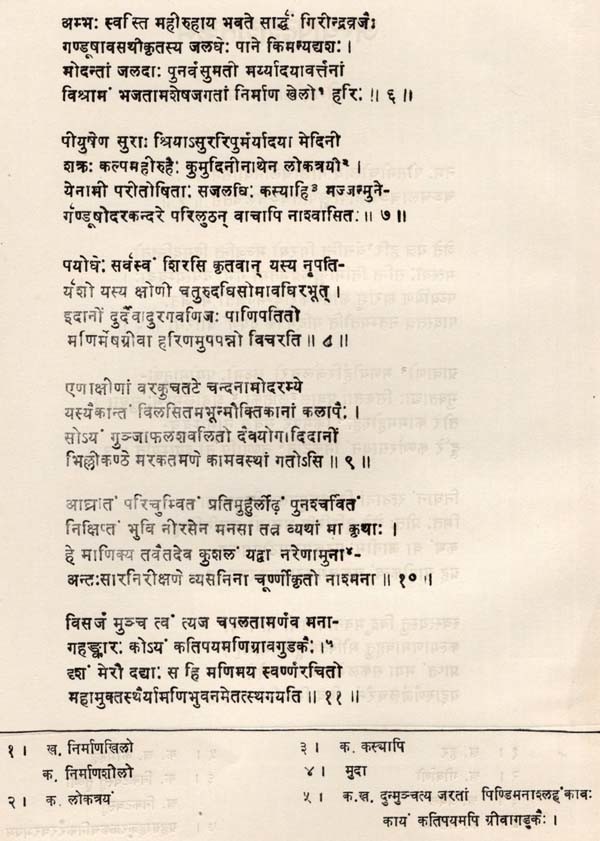 अम्भः स्वस्ति महीरुहाय भवते सार्द्धं गिरीन्द्रव्रजैः
गण्डूषावसथीकृतस्य जलधेः पाने किमन्यद्यशः ।
मोदन्तां जलदाः पुनर्वसुमती मर्य्यादयावर्त्तनां
विश्रामं भजतामशेषजगतां निर्माण खेलो१ हरिः ॥ ६ ॥
पीयुषेण सुराः श्रियाऽसुररिपुर्मर्यादया मेदिनी
शक्रः कल्पमहीरुहैः कुमुदिनीनाथेन लोकत्रयी२ ।
येनामी परितोषिताः सजलधिः कस्याहि३ मज्जन्मुने-
र्गण्डूषोदरकन्दरे परिलुठन् वाचापि नाश्वासितः ॥ ७ ॥
पयोधेः सर्वस्वं शिरसि कृतवान् यस्य नृपति-
र्यशो यस्य क्षोणी चतुरुदधिसोमावधिरभूत् ।
इदानीं दुर्दैवादुरगवणिजः पाणिपतितो
मणिर्मेषग्रीवा हरिणमुपपन्नो विचरति ॥ ८ ॥
एणाक्षीणां वरकुचतटे चन्दनामोदरम्ये
यस्यैकान्तं विलसितमभून्मौक्तिकानां कलापैः ।
सोऽयं गुञ्जाफलशवलितो दैवयोगादिदानीं
भिल्लीकण्ठे मरकतमणे कामवस्थां गतोऽसि ॥ ९ ॥
आघ्रातं परिचुम्वितं प्रतिमुहुर्लीढं पुनश्चर्वितं
निक्षिप्तं भुवि नीरसेन मनसा तत्र व्यथां मा कृथाः ।
हे माणिक्य तवैतदेव कुशलं यद्वा नरेणामुना४-
अन्तःसारनिरीक्षणे व्यसनिना चूर्ण्णीकृतो नाश्मना ॥ १० ।
विसर्जं मुञ्च त्वं त्यज चपलतामर्णव मना-
गहङ्कारः कोऽयं कतिपयमणिग्रावगुडकैः ।५
दृशं मेरौ दद्याः स हि मणिमय स्वर्ण्णरचितो
महामुक्तस्थैर्यामणिभुवनमेतत्स्थगयति ॥ ११ ॥
१ । ख. निर्माणखिलो
क. निर्माणशीलो
२ । क. लोकत्रयं
३ । क. कस्यापि
४ । मुदा
५ । क.ख. दुन्मुञ्चत्य जरतां पिण्डिमनाश्लहं कावः
कायं कतिपयमपि ग्रीवागडुकैः ।